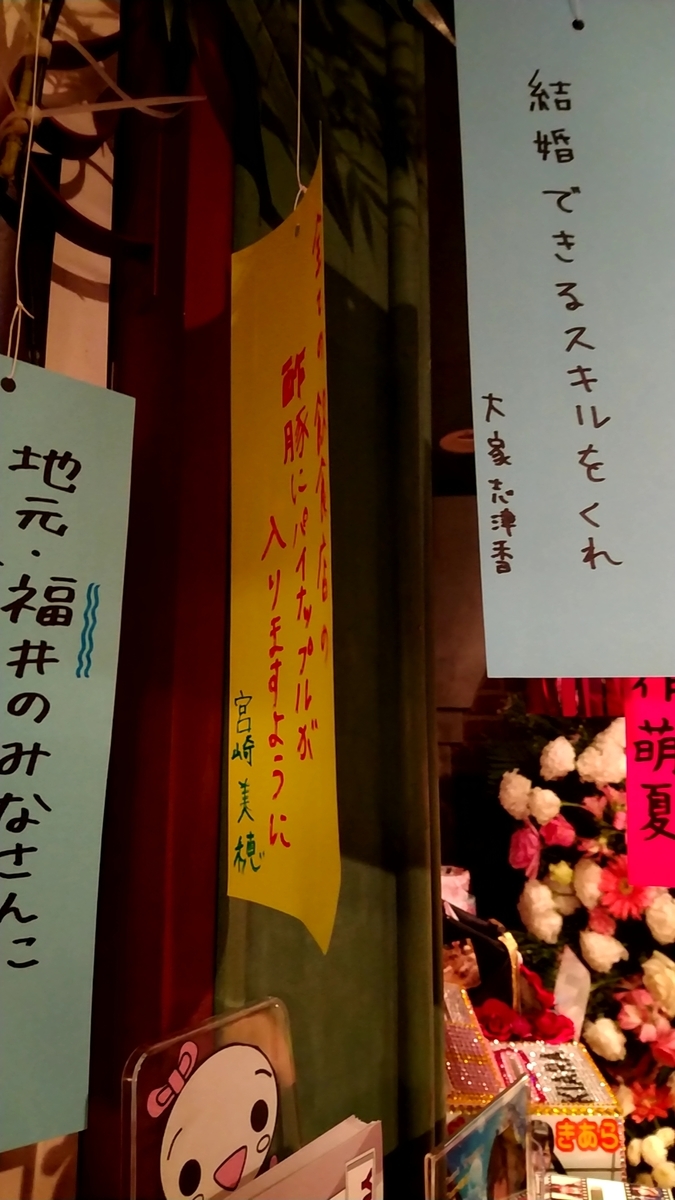 結婚できるスキルをくれ
大家志津香
全ての飲食店の
酢豚にパイナップルが
入りますように
宮崎美穂
地元・福井のみなさんこ
萌夏
KIARA
きあら